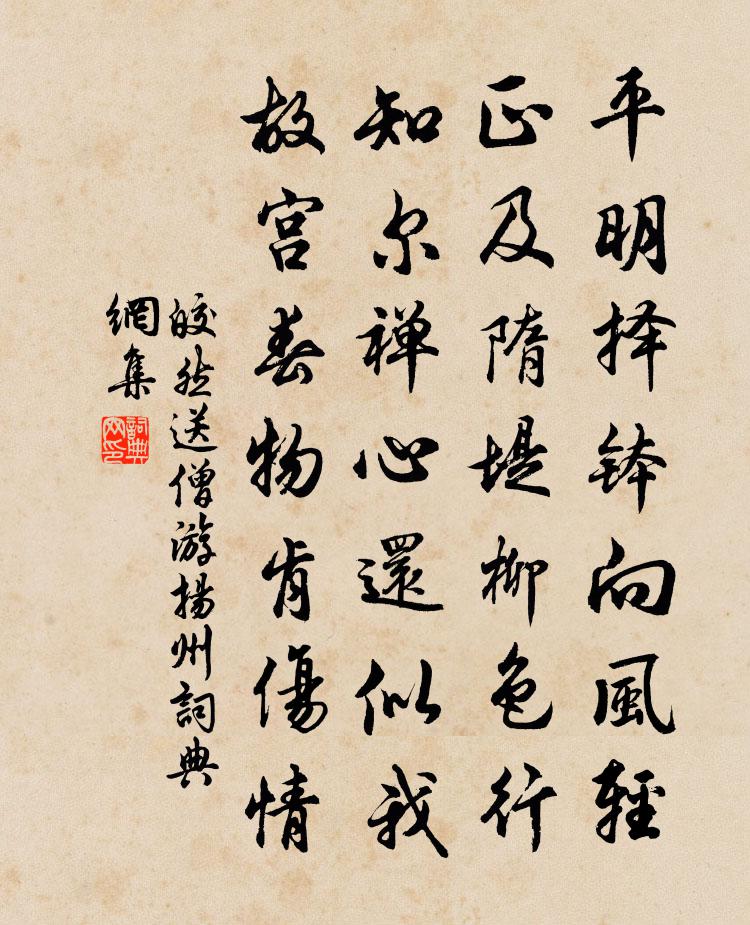 平明择钵向風輕
正及隋堤柳色行
知尔禅心還似我
故宫春物肯傷情
皎然送僧游揚州詞典
網集
詞典
网印